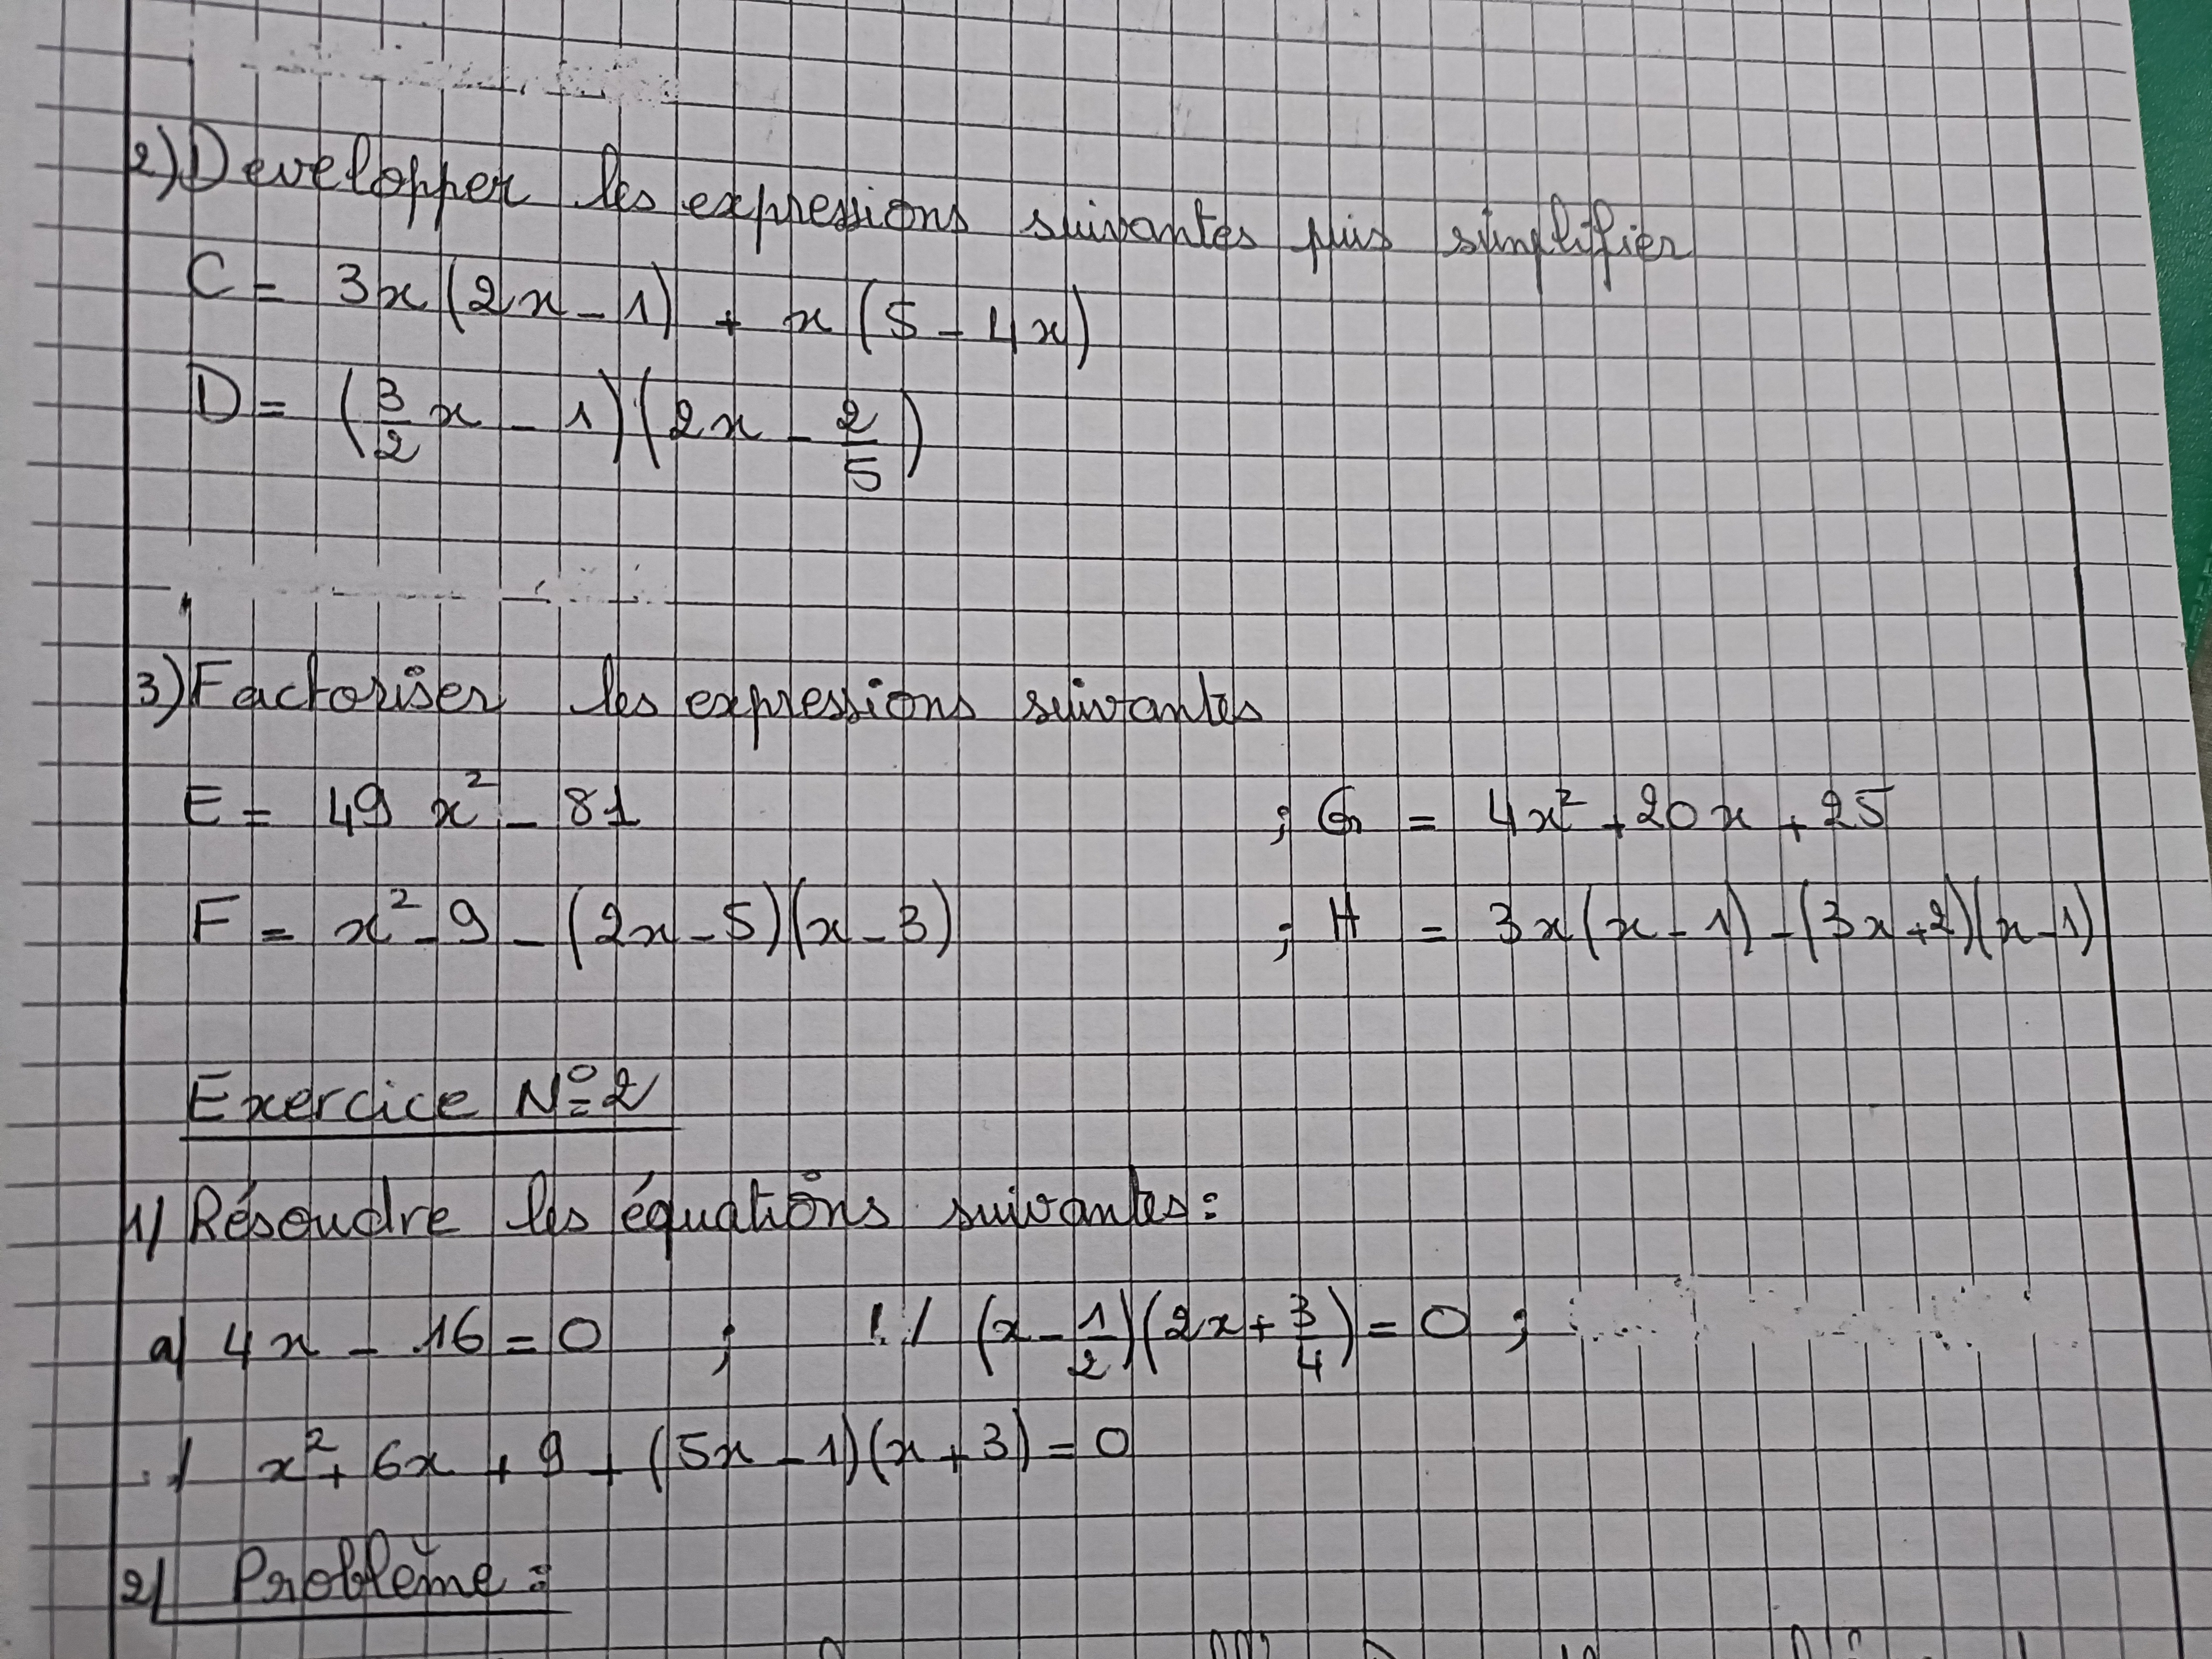 2) Developper les expressions suivantes puis simplifier
C = 3x(2x - 1) + x(5 - 4x)
D = (3/2 x - 1)(2x - 2/5)
3) Factoriser les expressions suivantes
E = 49 x² - 81 ; G = 4x² + 20x + 25
F = x² - 9 - (2x - 5)(x - 3) ; H = 3x(x - 1) - (3x + 2)(x - 1)
Exercice N° 2
1/ Résoudre les équations suivantes :
a/ 4x - 16 = 0 ; / (x - 1/2)(2x + 3/4) = 0 ;
/ x² + 6x + 9 + (5x - 1)(x + 3) = 0
2/ Problème :